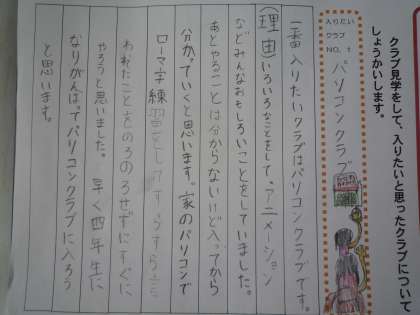 クラブ見学をして、入りたいと思ったクラブについて
しょうかいします。
入りたい
クラブ
NO.1
パソコンクラブ
一番入りたいクラブはパソコンクラブです。
(理由)いろいろなことをして、アニメーション
などみんなおもしろいことをしていました。
あとやることは分からないけど入ってから
分かっていくと思います。家のパソコンで
ローマ字練習をしてすらすら
われたことをのろのろせずにすぐに
やろうと思いました。早く四年生に
なりがんばってパソコンクラブに入ろう
と思います。